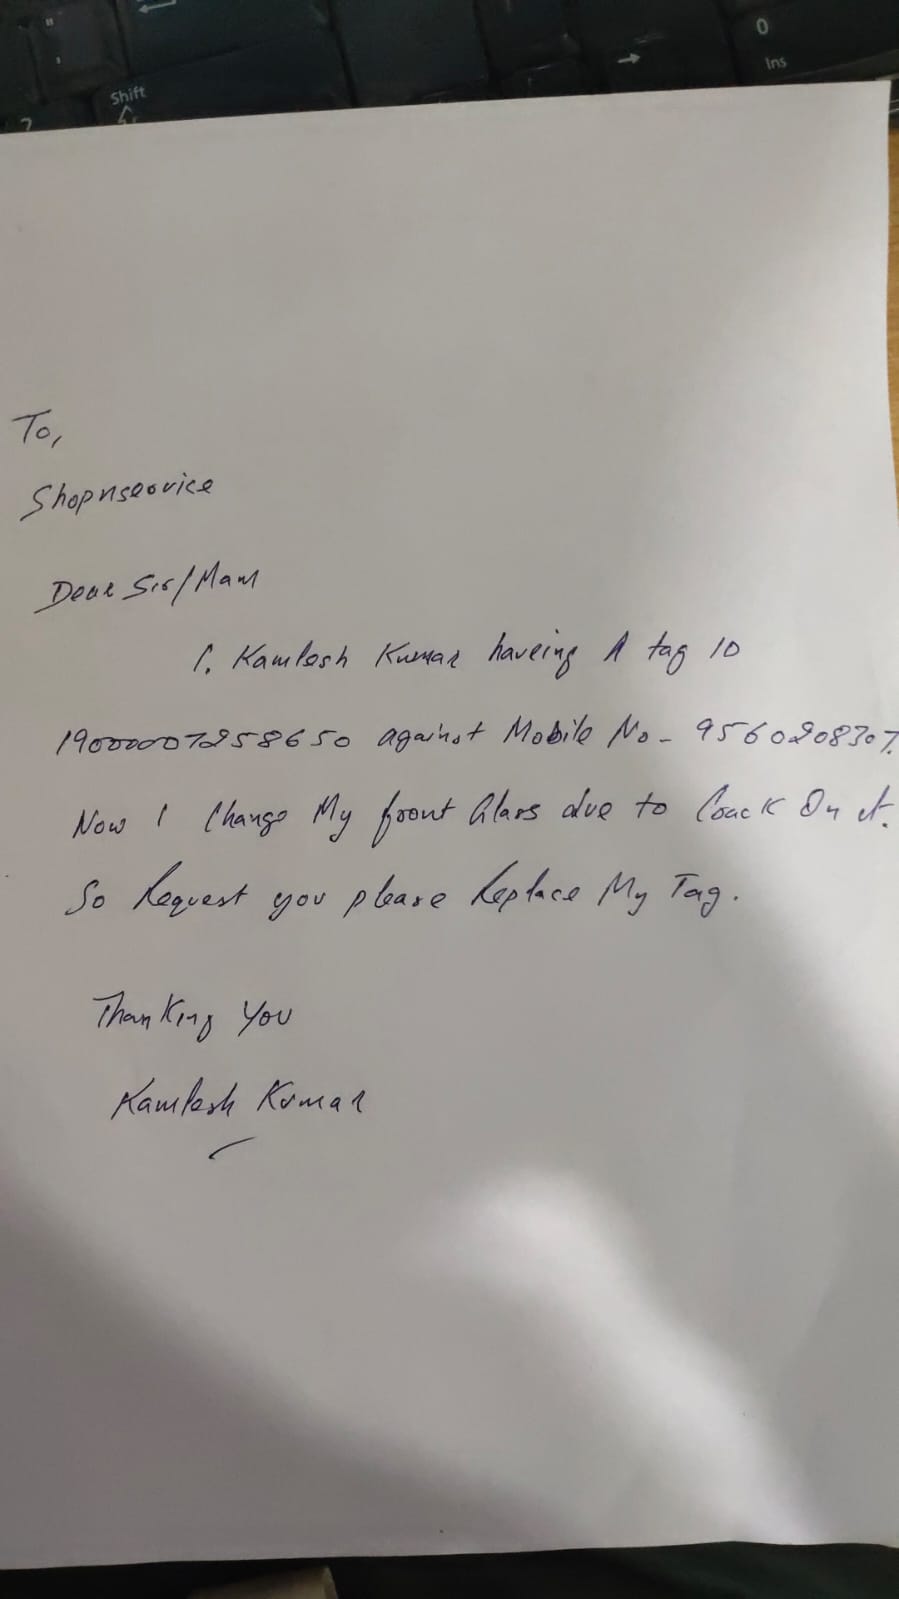 "
'
Shift
?
0
Ins
To,
Shopnservice
Dear Sir/Mam
I. Kamlesh Kumar haveing A tag ID
19000007258650 against Mobile No- 9560208307.
Now I Change My front Glass due to Crack On it.
So Request you please Replace My Tag.
Thanking You
Kamlesh Kumar